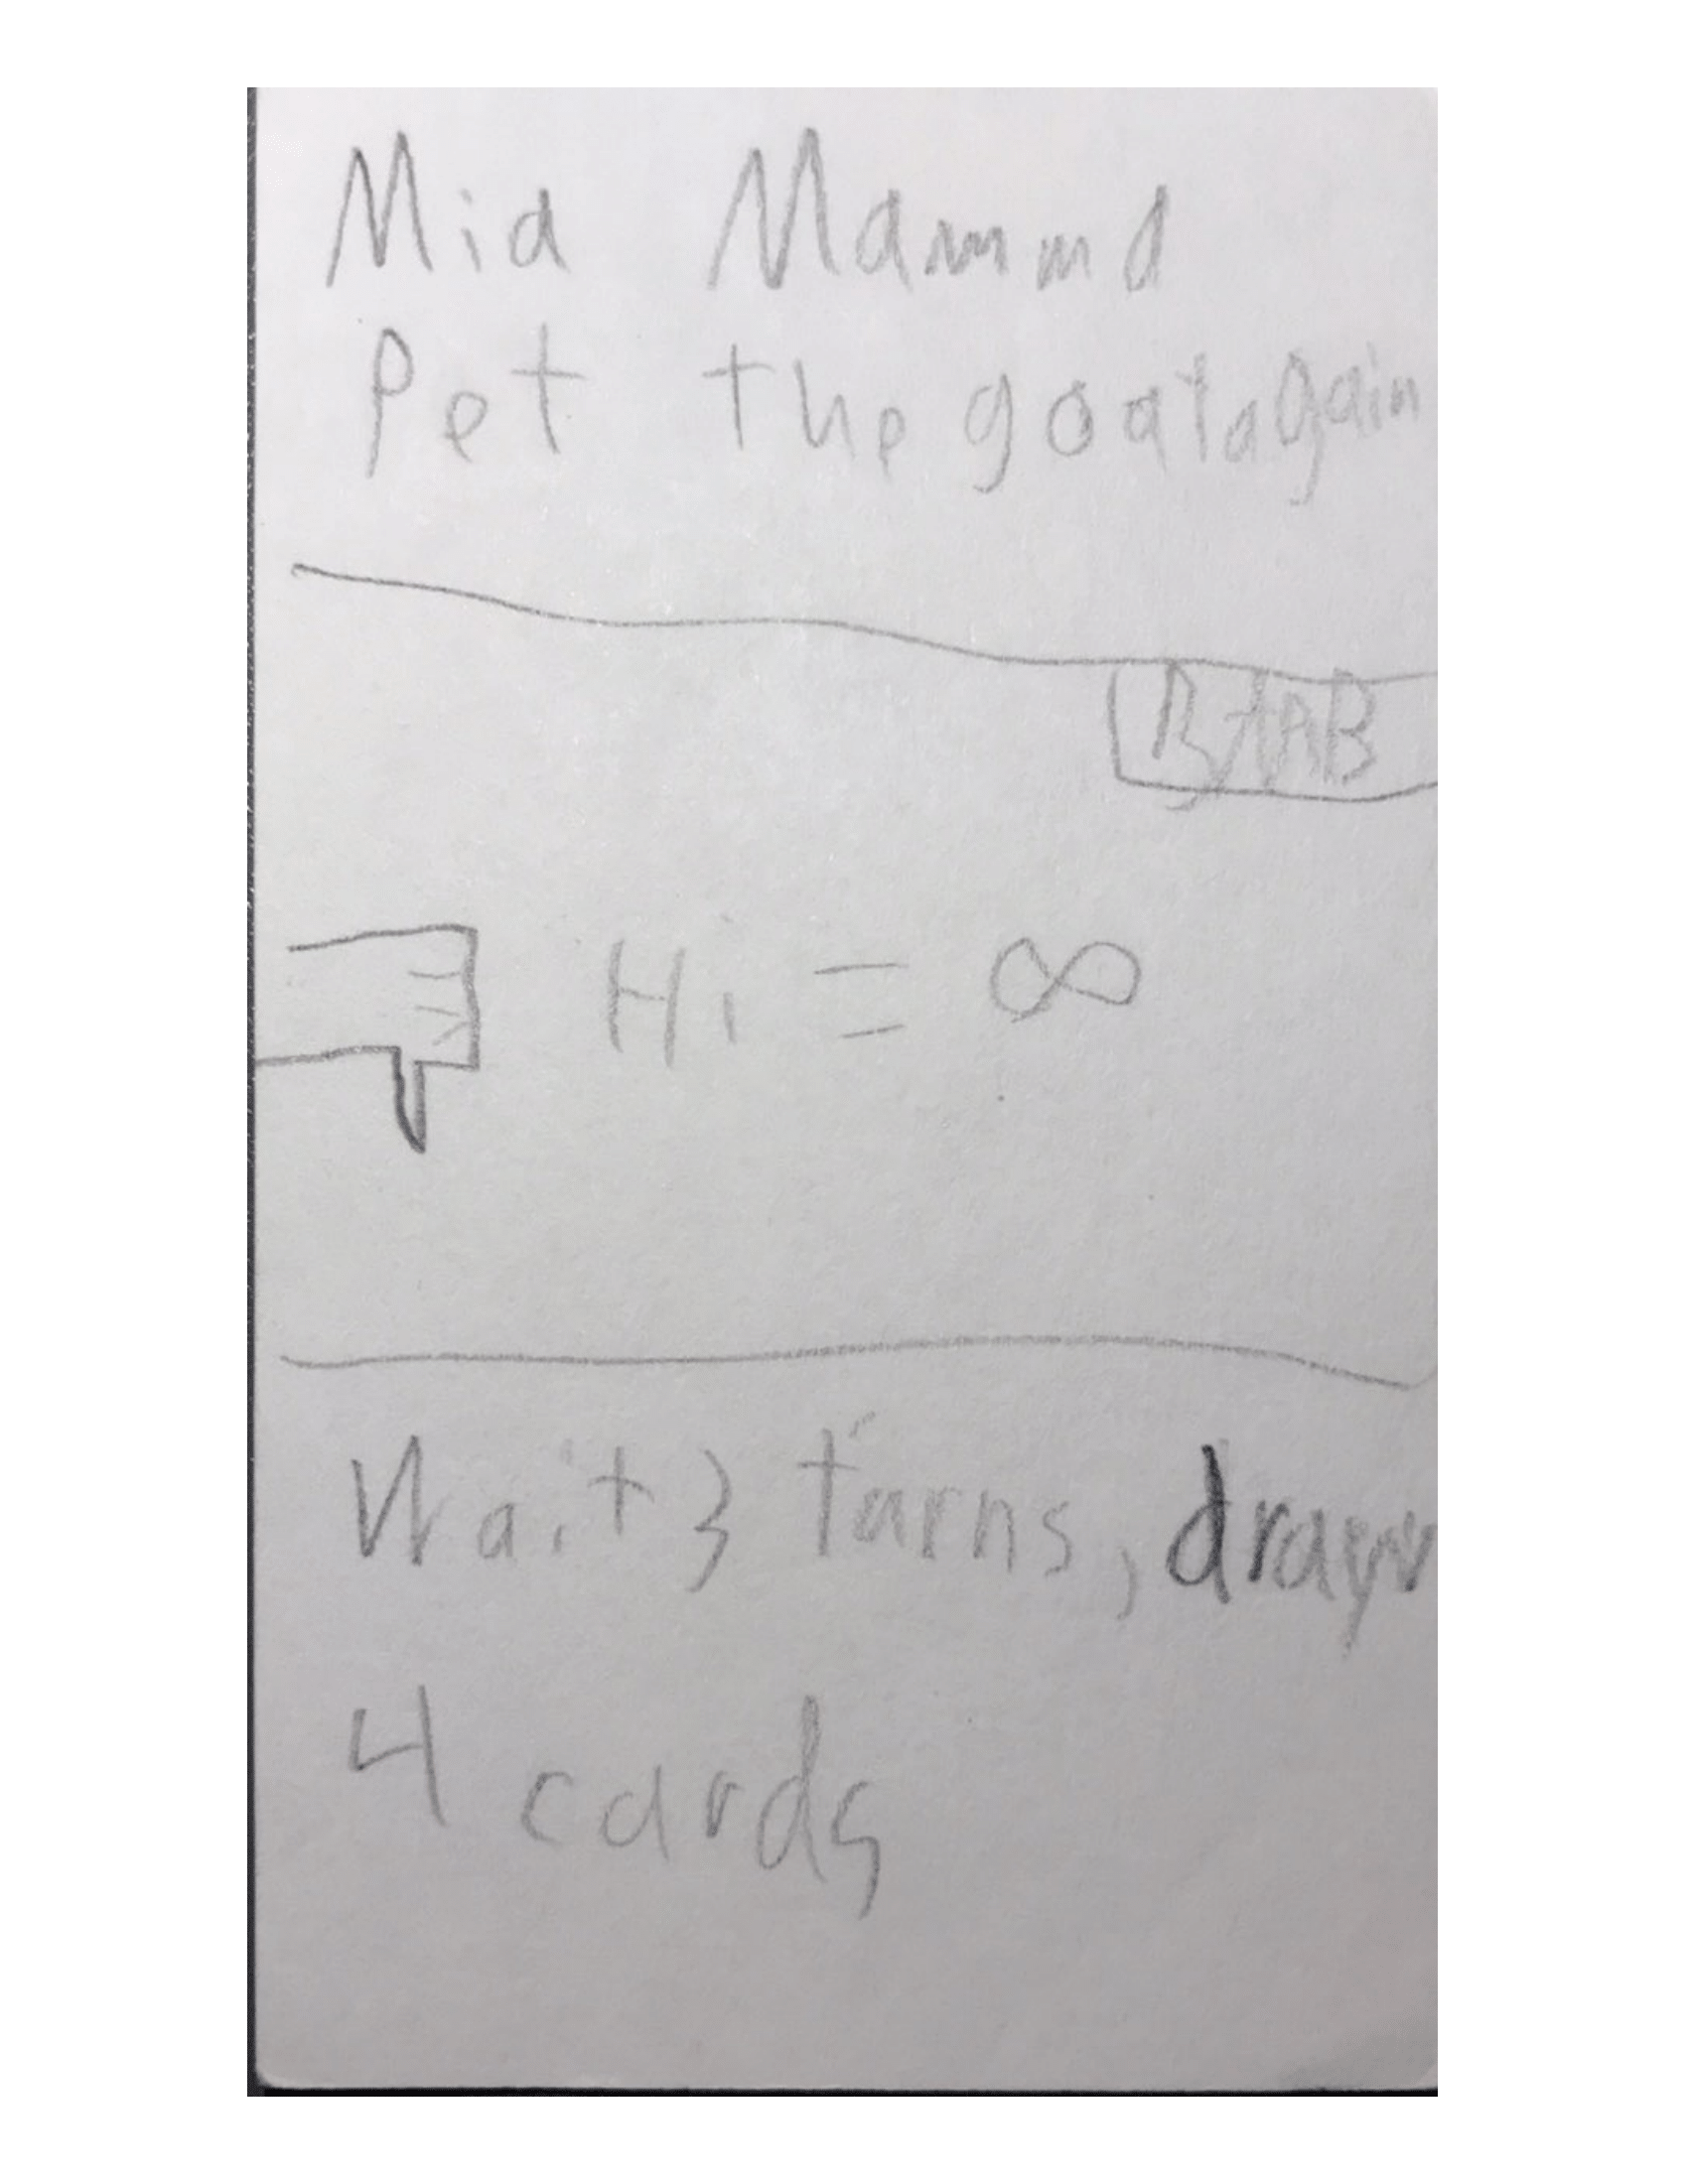 Mia Mamma
Pet the goat again
BAAB
Hi = ∞
Wait 3 turns, draw
4 cards